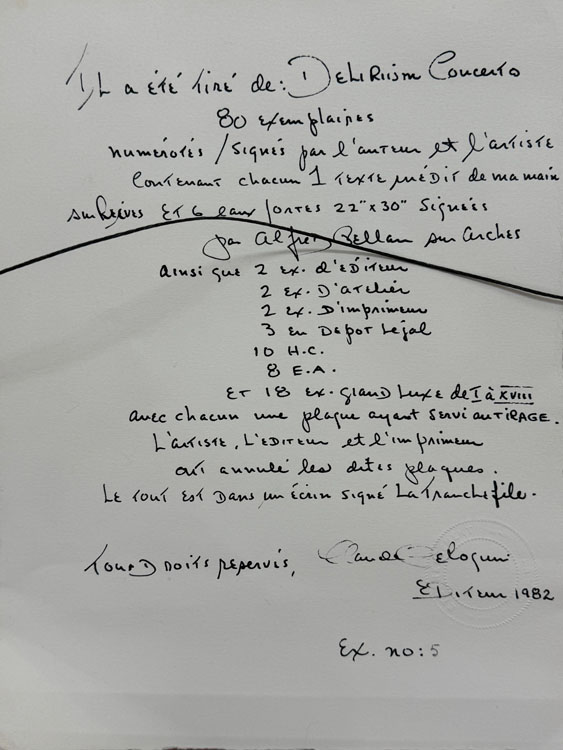 IL a été tiré de: Delirium Concerto
80 exemplaires
numérotés/signés par l'auteur et l'artiste
contenant chacun 1 texte inédit de ma main
sur Reives ET 6 eaux fortes 22"x30" signées
par Alfred Pellan sur Arches
ainsi que 2 ex. d'éditeur
2 ex. D'atelier
2 ex. D'imprimeur
3 en Depot Légal
10 H.C.
8 E.A.
ET 18 ex. grand Luxe de I à XVIII
avec chacun une plaque ayant servi au TIRAGE.
L'artiste, L'editeur et l'imprimeur
ont annulé les dites plaques.
Le tout est Dans un écrin signé La Tranchefile.
Tous Droits reservés,
Editeur 1982
Ex. no: 5